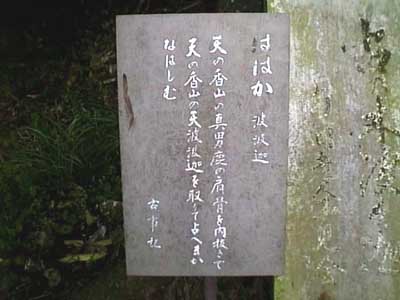 ははか 波波迦
天の香山の真男鹿の肩骨を内抜きて
天の香山の天波波迦を取りて占へまか
なはしむ
古事記